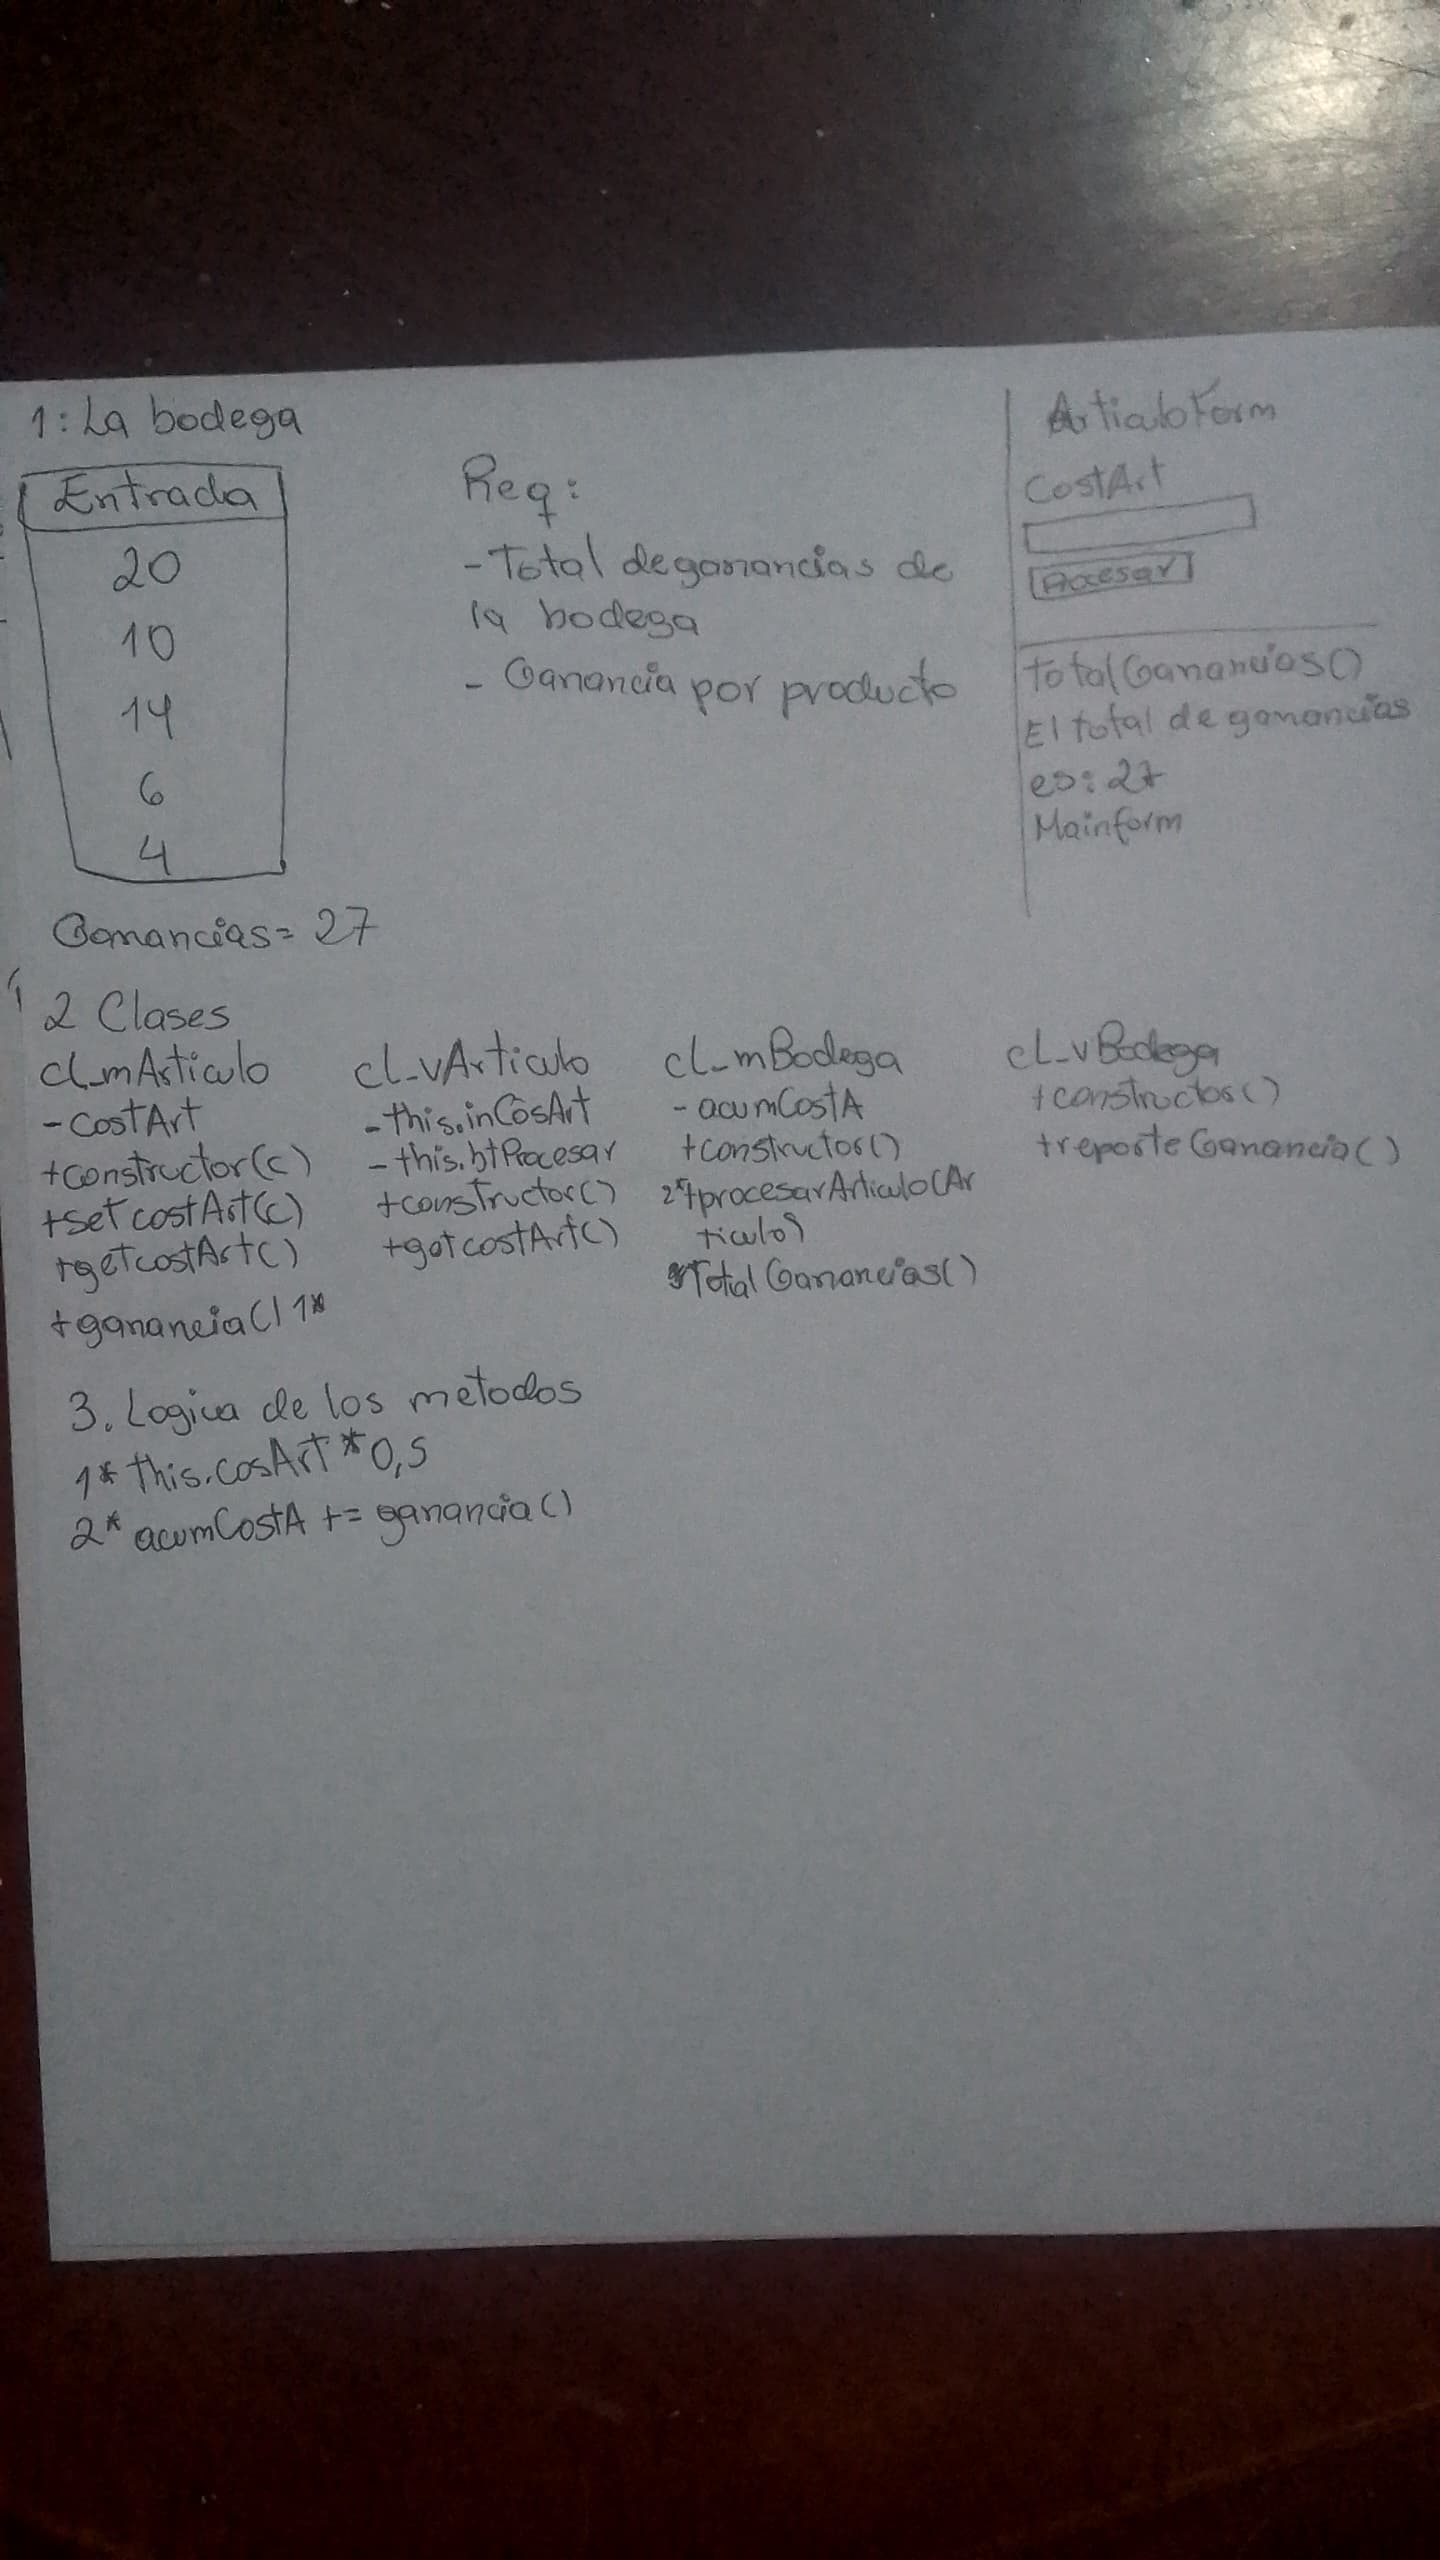 1: La bodega
Entrada
20
10
14
6
4
Ganancias = 27
Req:
- Total de ganancias de
la bodega
- Ganancia por producto
ArticuloForm
CostArt
TotalGanancias()
El total de ganancias
es: 27
Mainform
2 Clases
cl_mArticulo
- CostArt
+constructor(c)
+set costArt(c)
+getcostArt()
+ganancia() 1*
cl_vArticulo
- this.inCosArt
- this.btProcesar
+constructor()
+getcostArt()
cl_mBodega
- acumCostA
+constructor()
2*+procesarArticulo(Ar
ticulo)
TotalGanancias()
cl_vBodega
+constructor()
+reporteGanancia()
3. Logica de los metodos
1* this.cosArt * 0,5
2* acumCostA += ganancia()